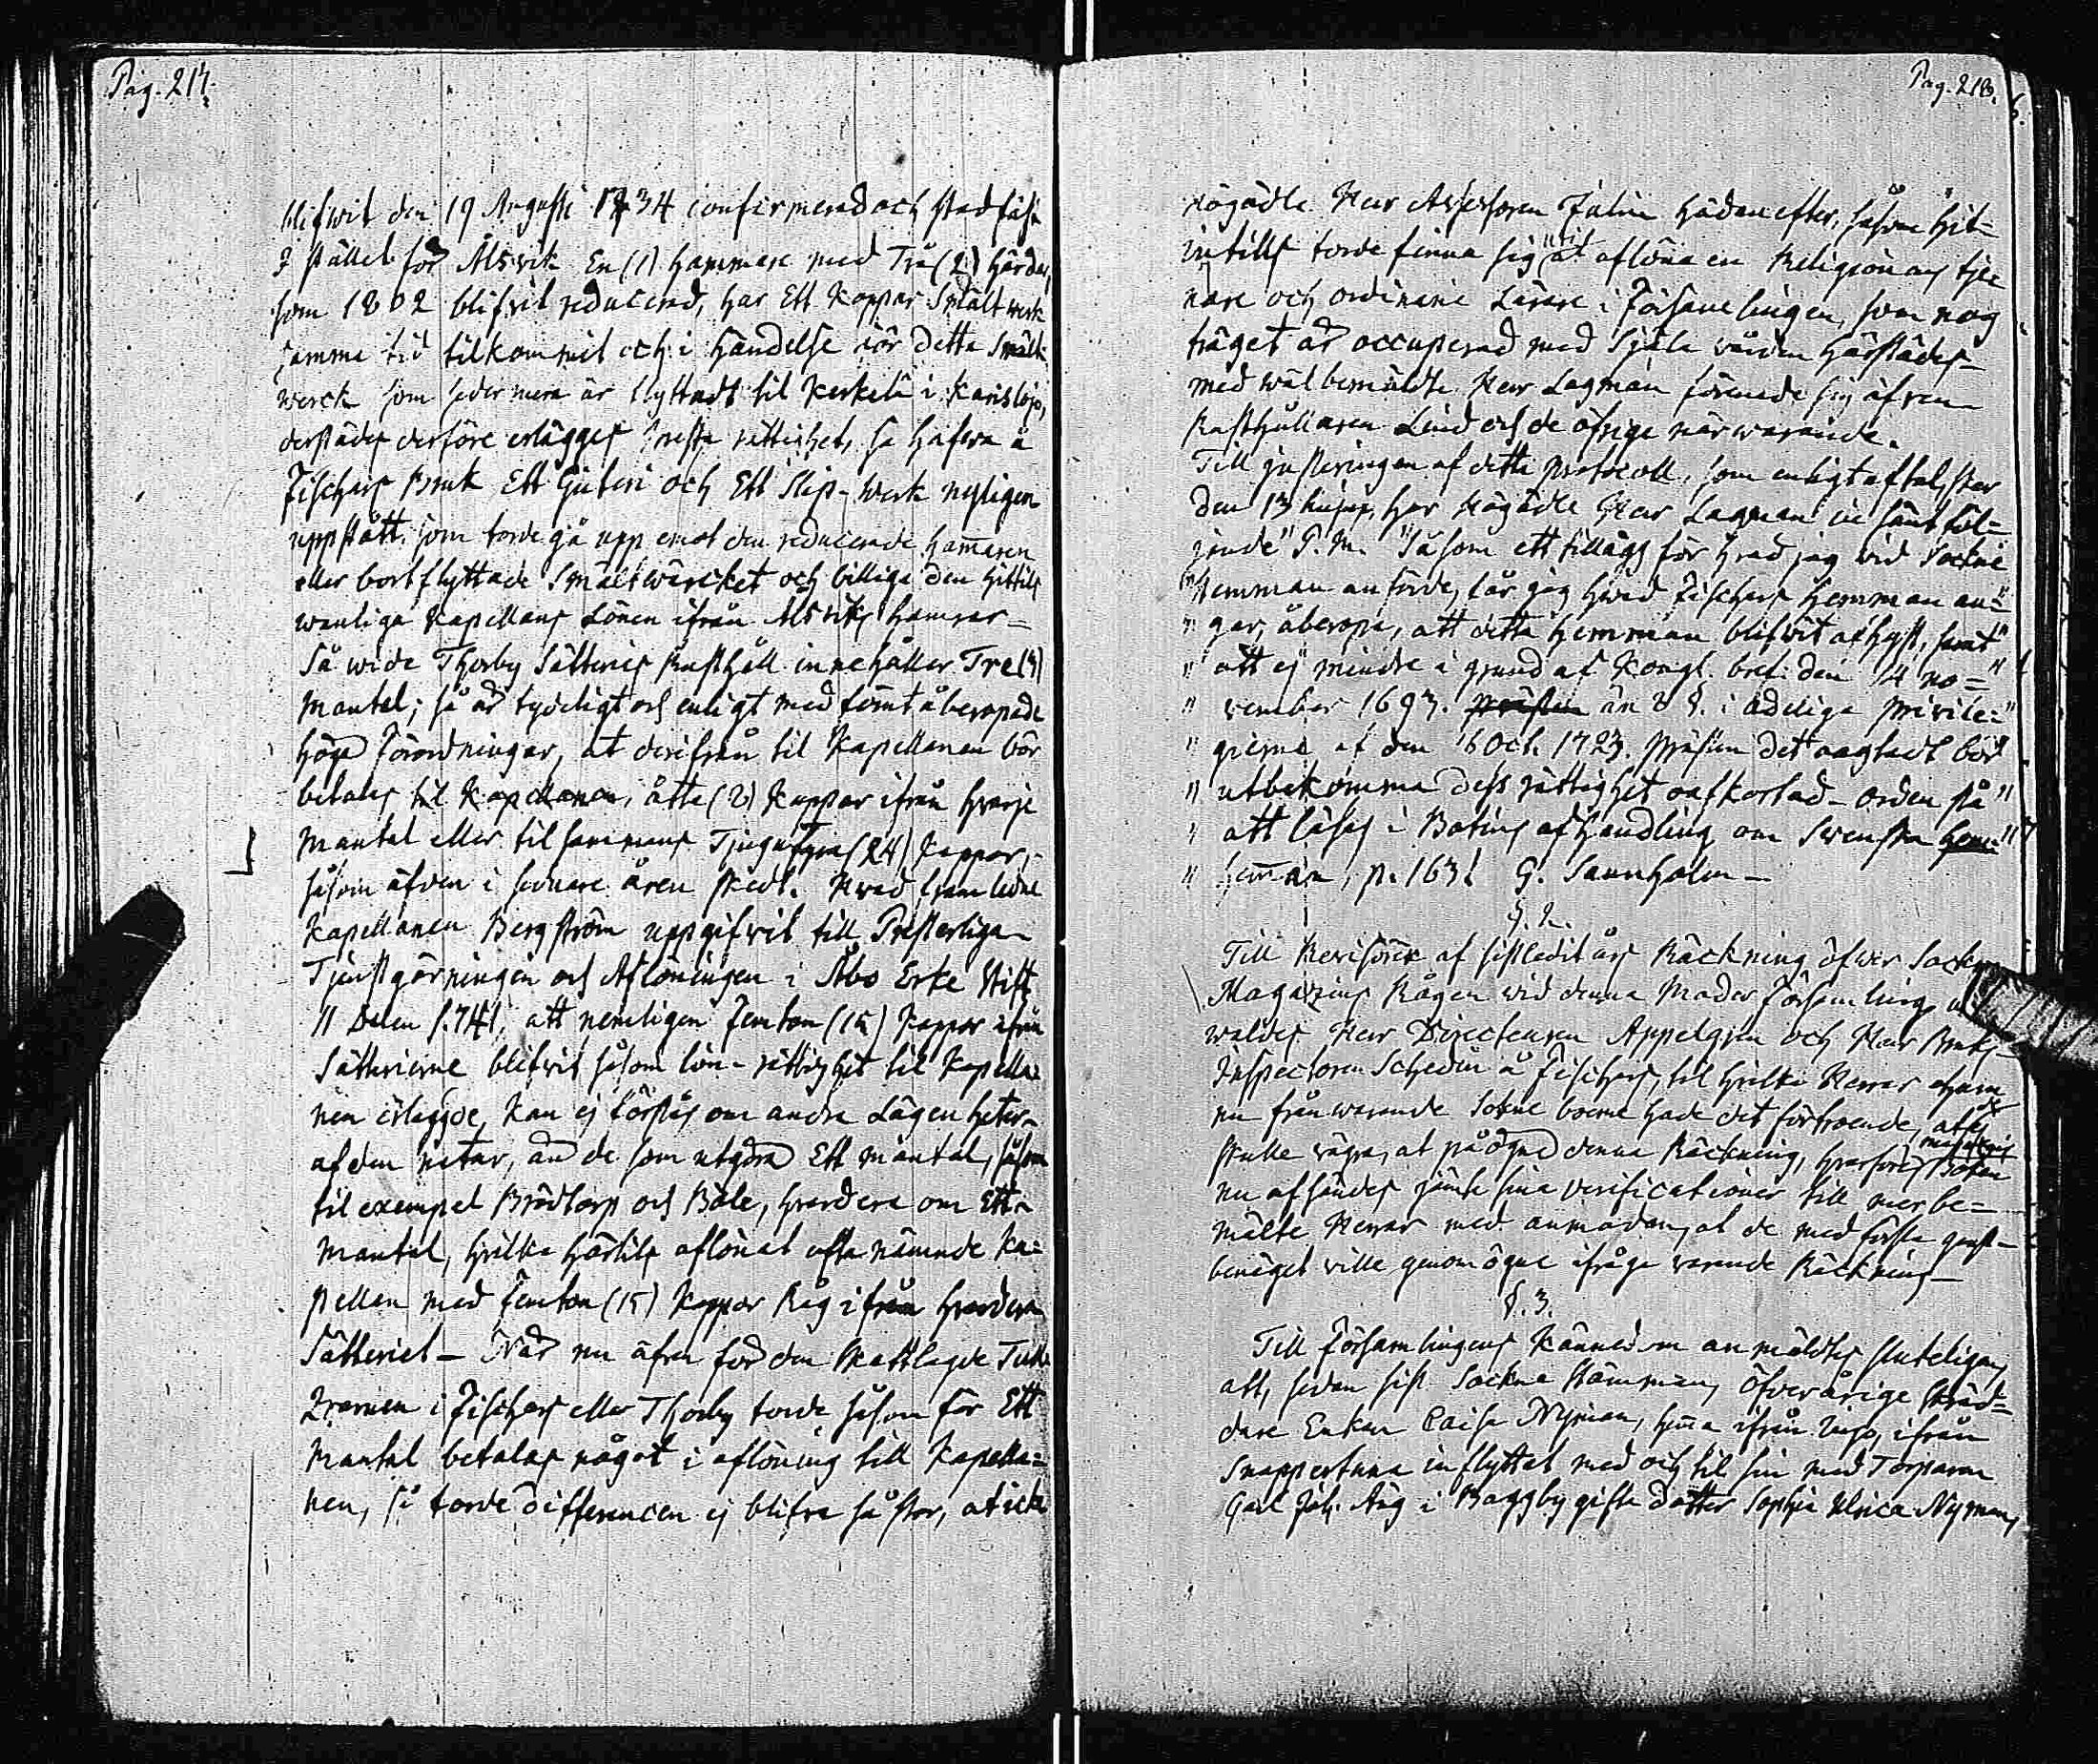 Pag. 217.
blifwit den 19 Augusti 1734 confirmerad och stadfäst
I stället för Älswik En (1) hammare med Två (2) härdar,
som 1802 blifvit reducerad, har Ett Koppar Smält werk
samma tid tilkommit och i händelse för detta Smält-
werck som sedermera är flyttadt til Kerkelä i Karislojo,
derstädes derföre erlägges Prest rättighet, så hafva å
Fischars Bruk Ett Gjuteri och Ett Slip-werk nyligen
uppstått, som torde gå upp emot den reducerade hammaren
eller bortflyttade Smältwärcket och billiga den hittills
wanliga Kapellans Lönen ifrån Älswiks hamrar-
Så wida Thorby Säteries Rusthåll innehåller Tre (3)
mantal; så är tydeligt och enligt med förut åberopade
höga Förordningar, at derifrån til Kapellanen bör
betalas til Kapellanen, åtta (8) Kappar ifrån hvarje
mantal eller tilsammans Tjugufyra (24) Kappar,
såsom äfven i sednare åren skedt. Hvad framledne
Kapellanen Bergström uppgifvit till Presterliga
Tjenstgörningen och Aflöningen i Åbo Erke Stift
II Delen s. 741, att nemligen Femton (15) Kappar ifrån
Sätterierne blifvit såsom lön-rättighet til Kapella-
nen erlagde, kan ej förstås om andra Lägenheter
af den natur, än de som utgöra Ett mantal, såsom
til exempel Brödtorp och Böle, hvardera om Ett
mantal, hvilka härtils aflönat ofta nämnde Ka-
pellan med Femton (15) Kappar Råg ifrån hvardera
Sätteriet - När nu äfven för den skattlagde Tull
Qvarnen i Fischars eller Thorby torde såsom för Ett
Mantal betalas något i aflöning till Kapella-
nen, så torde differencen ej blifva så stor, at icke
Pag. 218.
Högädle Herr Assessoren Julin hädanefter, såsom hit-
intills torde finna sig vid at aflöna en Religionens tje-
nare och ordinarie Lärare i Församlingen, som nog
träget är occuperad med Själa vården härstädes-
med wälbemäldte Herr Lagman förenade sig äfven
Rusthållaren Lind och de öfrige närwarande.
Till justeringen af detta protocoll, som enligt aftal sker
den 13 hujus, har Högädle Herr Lagman insändt föl-
jande" P.M. "Såsom ett tillägg för hvad jag vid Sockne
"stemman anförde, får jag hwad Fischars Hemman an="
" går, åberopa, att detta Hemman blifvit afhyst, samt"
" att ej mindre i grund af Kongl. bref. den 14 no="
" vember 1693. än 8 §. i Adeliga Privile="
" gierne af den 16 Oct. 1723. Prästen det oagtadt bör
" utbekomma dess rättighet oafkortad - orden stå"
" att läsas i Botins afhandling om Svenska Hem="
" hemman, p. 163! G. Sannholm -
§. 2.
Till Revisörer af sistledit års Räckning öfwer Sockne
Magazins Rågen vid denna Moder Församling ut
waldes Herr Directeuren Appelgren och Herr Bruks-
Inspectoren Schedin å Fischars, til hvilka Herrar eham
nu frånwarande Sokne boerne hade det förtroende, at ej
skulle vägra, at påögna denna Räckning, hvarföre Magazins Boken
nu afsändes jämte sina verificationer till merbe-
mälte Herrar med anmodan, at de med första gunst-
benäget ville genomögna ifråga warande Räckning-
§. 3.
Till Församlingens Kännedom anmäldtes sluteligen,
att, sedan sist Sockne Stämman, öfverårige Skräd-
dare Enkan Caisa Nyman, hema ifrån Ingo, ifrån
Snappertuna inflyttat med och til sin med Torparen
Carl Joh. Åhg i Baggby gifta dotter Sophia Ulrica Nyman,